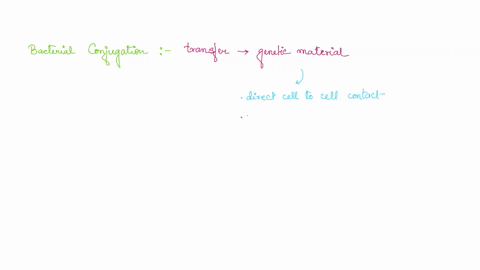 Bacterial Conjugation :- transfer → genetic material
. direct cell to cell contact
.